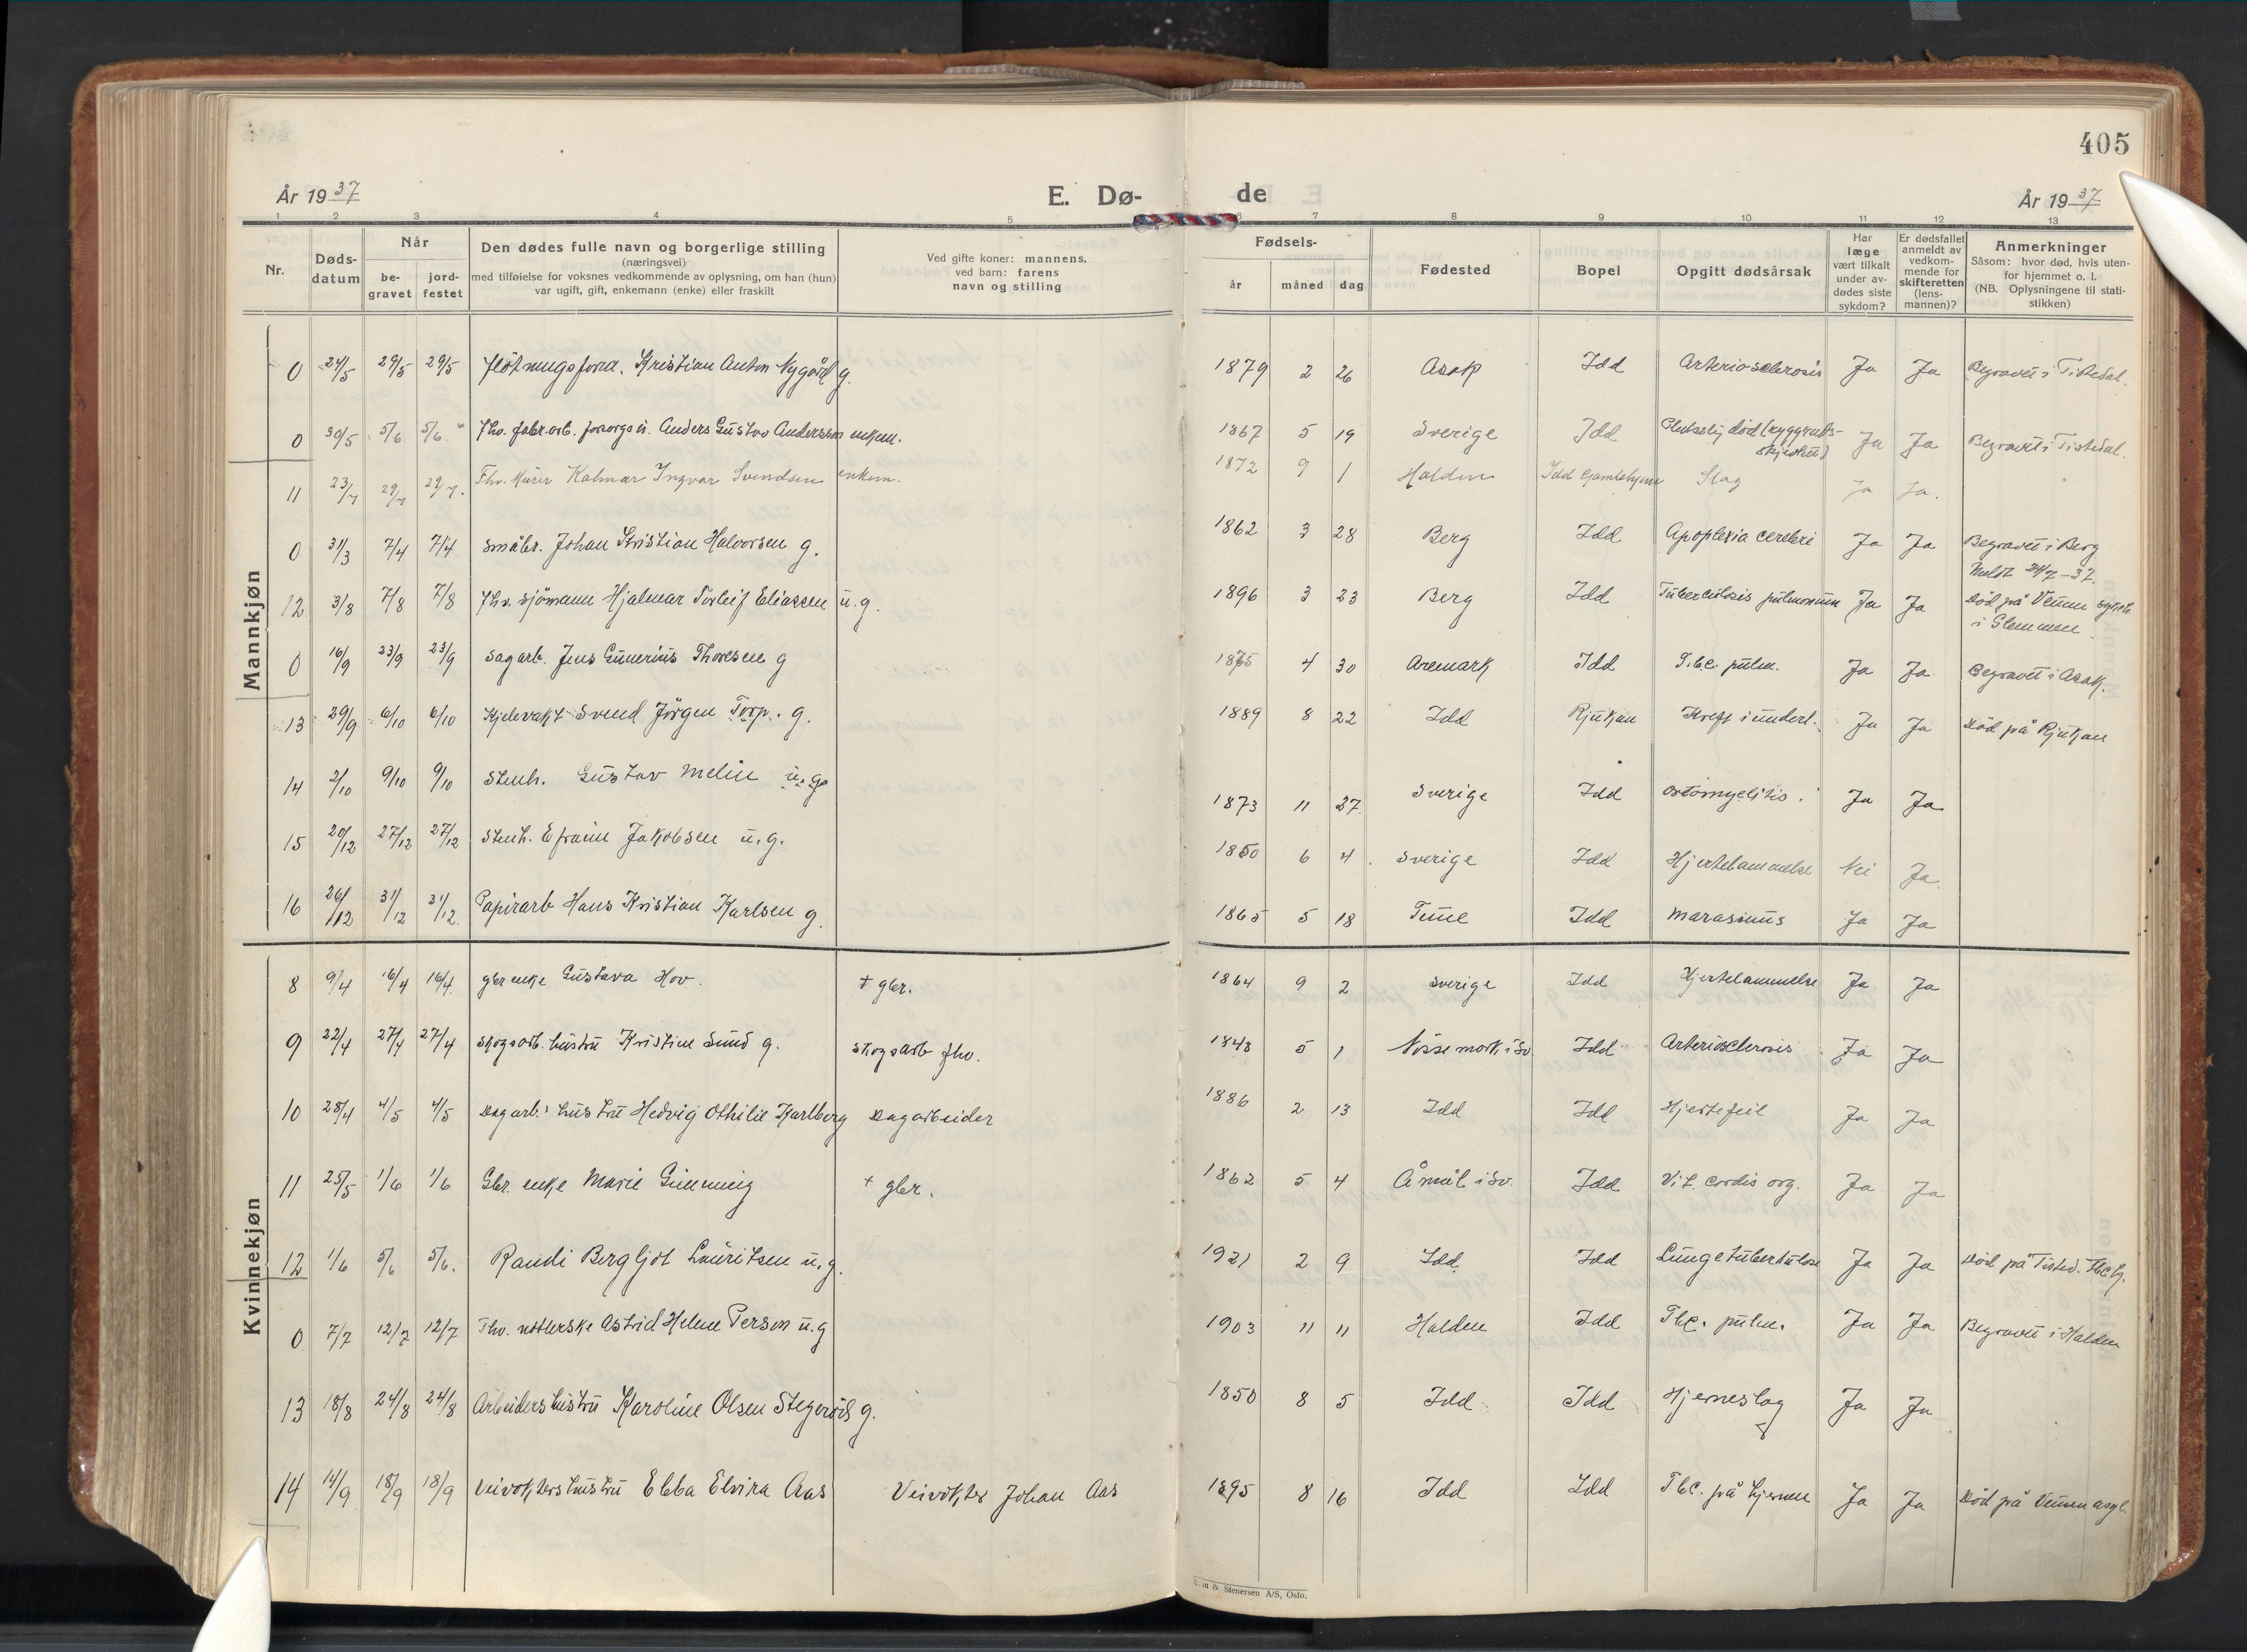 405
År 1937 E. Dø- de År 1937
1 2 3 4 5 6 7 8 9 10 11 12 13
Nr.
Døds-
datum
Når
be-
gravet
jord-
festet
Den dødes fulle navn og borgerlige stilling
(næringsvei)
med tilføielse for voksnes vedkommende av oplysning, om han (hun)
var ugift, gift, enkemann (enke) eller fraskilt
Ved gifte koner: mannens,
ved barn: farens
navn og stilling
Fødsels-
år måned dag
Fødested
Bopel
Opgitt dødsårsak
Har
læge
vært tilkalt
under av-
dødes siste
sykdom?
Er dødsfallet
anmeldt av
vedkom-
mende for
skifteretten
(lens-
mannen)?
Anmerkninger
Såsom: hvor død, hvis uten-
for hjemmet o. l.
(NB. Oplysningene til stati-
stikken)
Mannkjøn
0 24/5 29/5 29/5 Fløtningsform. Kristian Anton Nygård g. 1879 2 26 Asak Idd Arteriosclerosis Ja Ja Begravet i Tistedal.
0 30/5 5/6 5/6 Fhv. fabr.arb. Anders Gustav Andersson enkem. 1867 5 19 Sverige Idd Plutselig død (ryggrads-
skjevhet) Ja Ja Begravet i Tistedal.
11 23/7 29/7 29/7. Fhv. Murer Kalmar Ingvar Svendsen enkem. 1872 9 1 Halden Idd Gamlehjem Slag Ja Ja.
0 31/3 7/4 7/4 Småbr. Johan Kristian Halvorsen g. 1862 3 28 Berg Idd Apoplexia cerebri Ja Ja Begravet i Berg
Meldt 24/7-37.
12 3/8 7/8 7/8 Fhv. Sjömann Hjalmar Torleif Eliassen u.g. 1896 3 23 Berg Idd Tuberculosis pulmonum Ja Ja Död på Veum sykeh.
i Glemmen
0 16/9 23/9 23/9 Sagarb. Jens Gunerius Thoresen g 1875 4 30 Aremark Idd T.b.c. pulm. Ja Ja Begravet i Asak.
13 29/9 6/10 6/10 Kjelevakt Svend Jörgen Torp. g. 1889 8 22 Idd Rjukan Kreft i underl. Ja Ja Död på Rjukan
14 2/10 9/10 9/10 Stenh. Gustav Melin u.g. 1873 11 27. Sverige Idd Ostomyelitis. Ja Ja
15 20/12 27/12 27/12 Stenh. Efraim Jakobsen u.g. 1850 6 4. Sverige Idd Hjertelammelse Nei Ja.
16 26/12 31/12 31/12. Papirarb Hans Kristian Karlsen g. 1865 5 18 Tune Idd Marasmus Ja Ja
Kvinnekjøn
8 9/4 16/4 16/4. gbr enke Gustava Hov. + gbr. 1864 9 2 Sverige Idd Hjertelammelse Ja Ja
9 22/4 27/4 27/4 Skogsarb. hustru Kristine Sund g. Skogsarb fhv. 1848 5 1 Nössemark i Sv. Idd Arteriosclerosis Ja Ja
10 28/4 4/5 4/5 Dagarb.s hustru Hedvig Othilie Karlberg Dagarbeider 1886 2 13 Idd Idd Hjertefeil Ja Ja
11 25/5 1/6 1/6 Gbr. enke Marie + gbr. 1862 5 4 Åmål i Sv. Idd Vit. cordis org. Ja Ja
12 1/6 5/6 5/6. Randi Bergljot Lauritsen u.g. 1921 2 9 Idd Idd Lungetuberkulose Ja Ja Död på Tisted. Tbc.hj.
0 7/7 12/7 12/7 Fhv. Astrid Helene Person u.g 1903 11 11 Halden Idd Tbc. pulm. Ja Ja Begravet i Halden
13 18/8 24/8 24/8 Arbeiders hustru Karoline Olsen Stegeröd g. 1850 8 5 Idd Idd Hjerneslag Ja Ja
14 14/9 18/9 18/9 Veivokters hustru Ebba Elvira Aas Veivokter Johan Aas 1895 8 16 Idd Idd Tbc. på hjernen Ja Ja Död på Veum asyl.
& Stenersen A/S, Oslo.